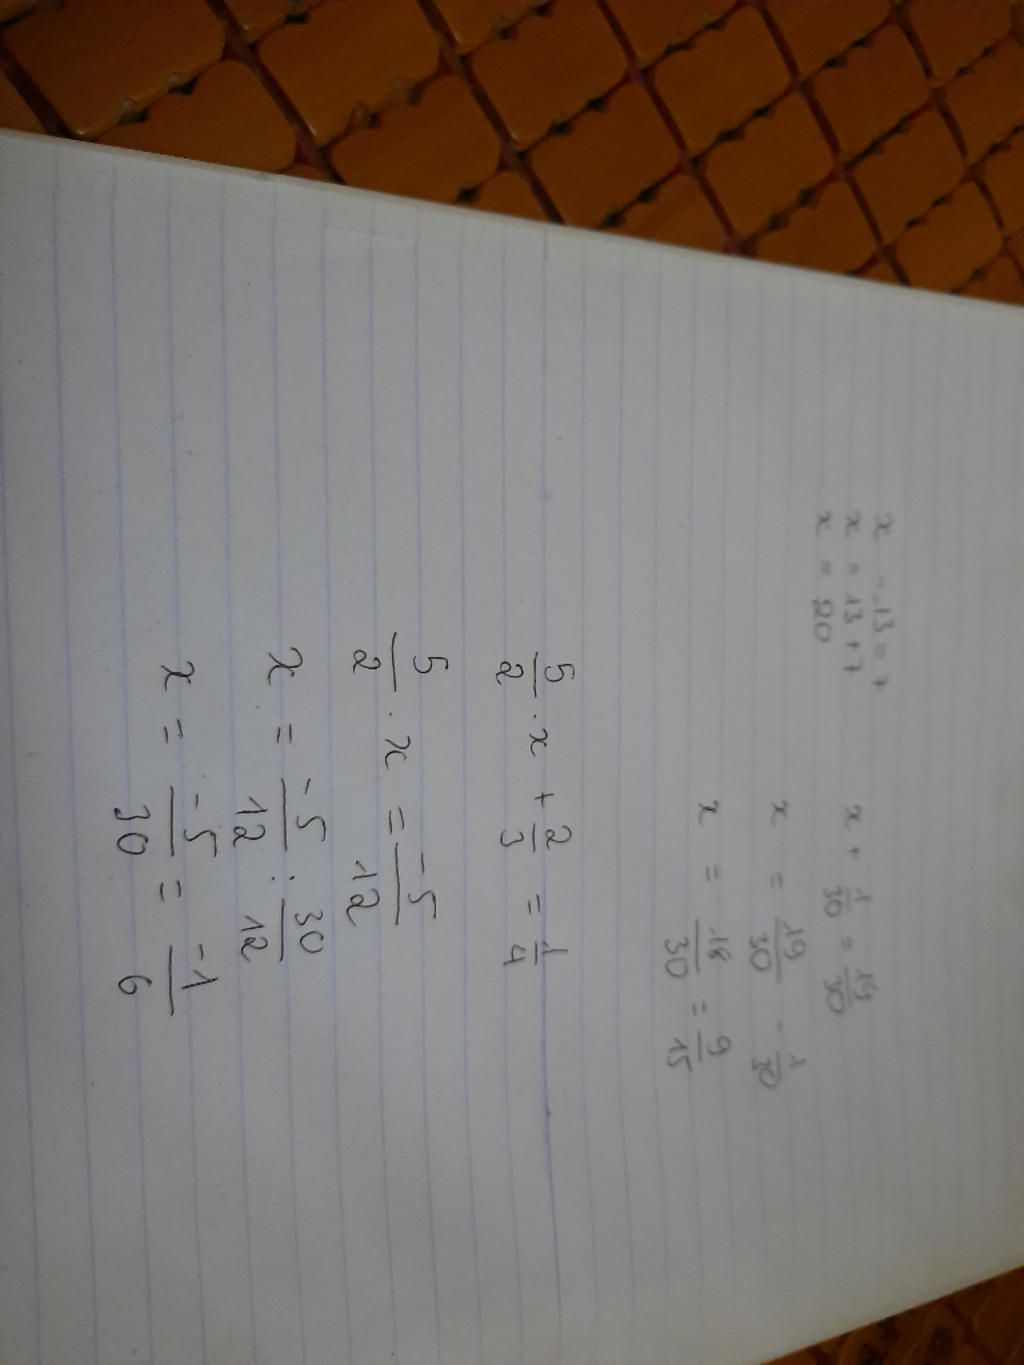 x - 13 = 7
x = 13 + 7
x = 20
x + 1/30 = 19/30
x = 19/30 - 1/30
x = 18/30 = 9/15
5/2 · x + 2/3 = 1/4
5/2 · x = -5/12
x = -5/12 : 30/12
x = -5/30 = -1/6